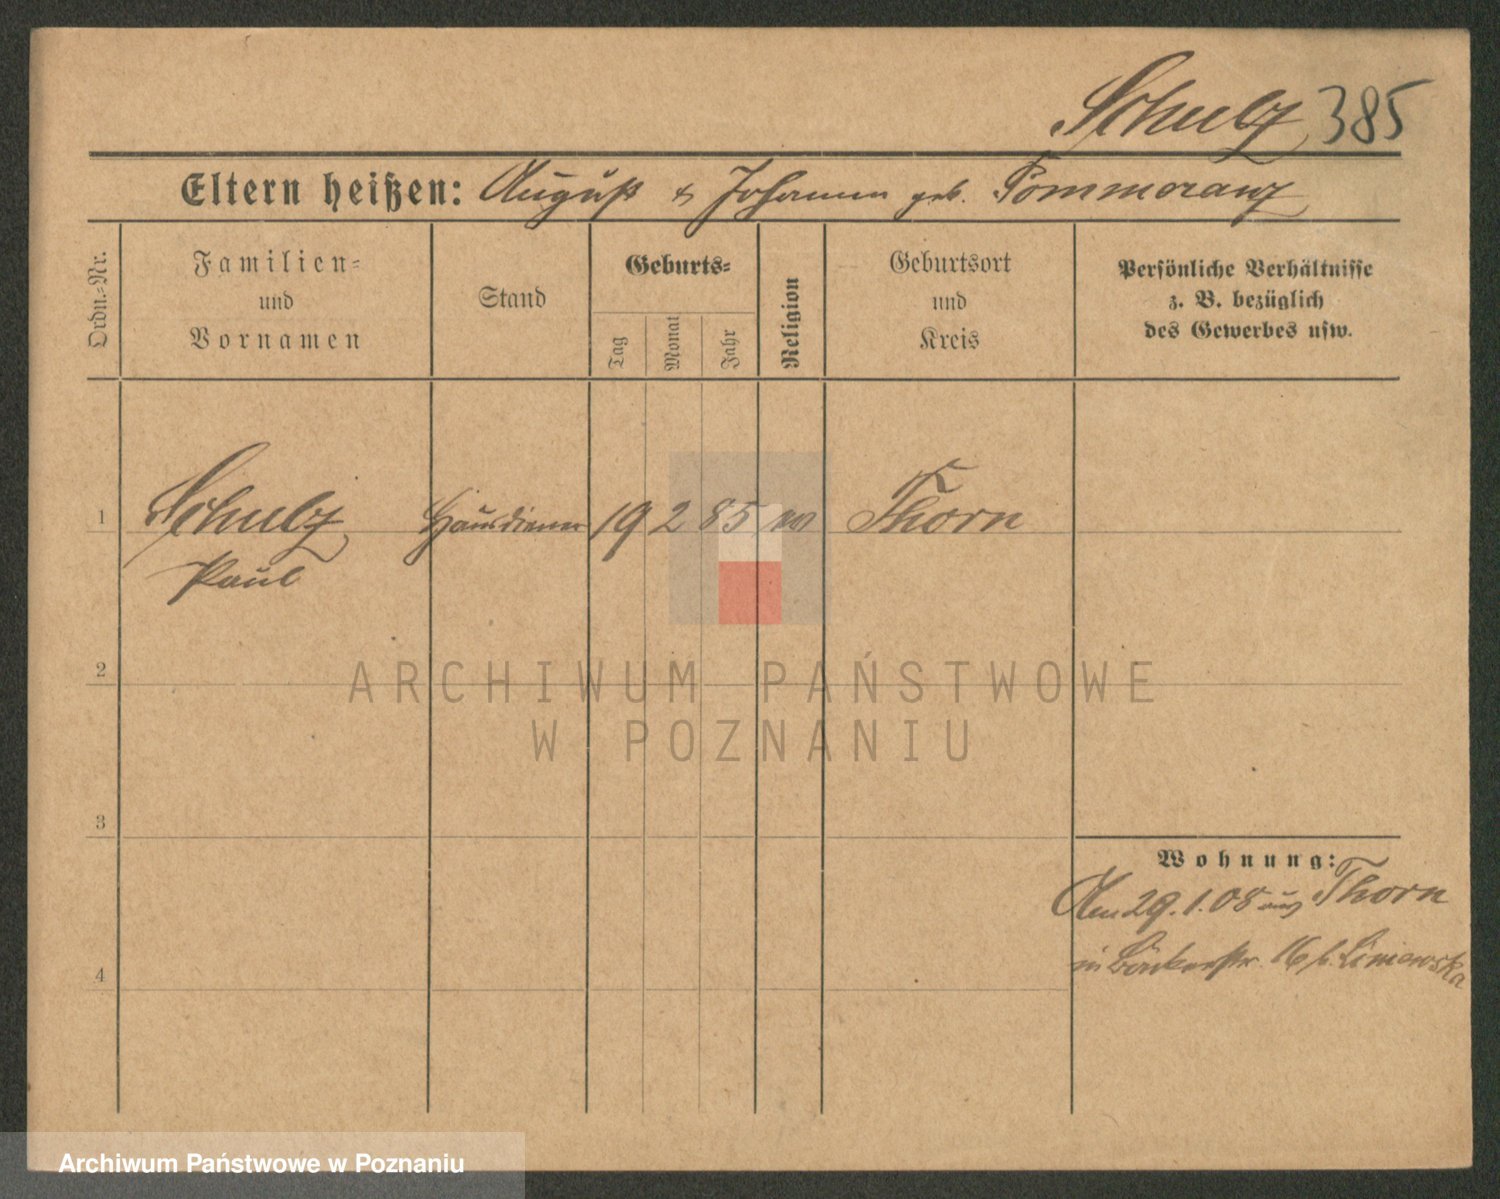 Schulz 385
Eltern heißen: August & Johanna geb. Pommeranz
Ordn.-Nr.
Familien- und Vornamen
Stand
Geburts-
Tag
Monat
Jahr
Religion
Geburtsort und Kreis
Persönliche Verhältnisse
z. B. bezüglich
des Gewerbes usw.
1 Schulz Hausdiener 19 2 85 Thorn
Paul
2
ARCHIWUM PAŃSTWOWE
W POZNANIU
3
Wohnung:
Am 29.1.08 aus Thorn
in Bäckerstr. 16 b. Liniewska
4
Archiwum Państwowe w Poznaniu